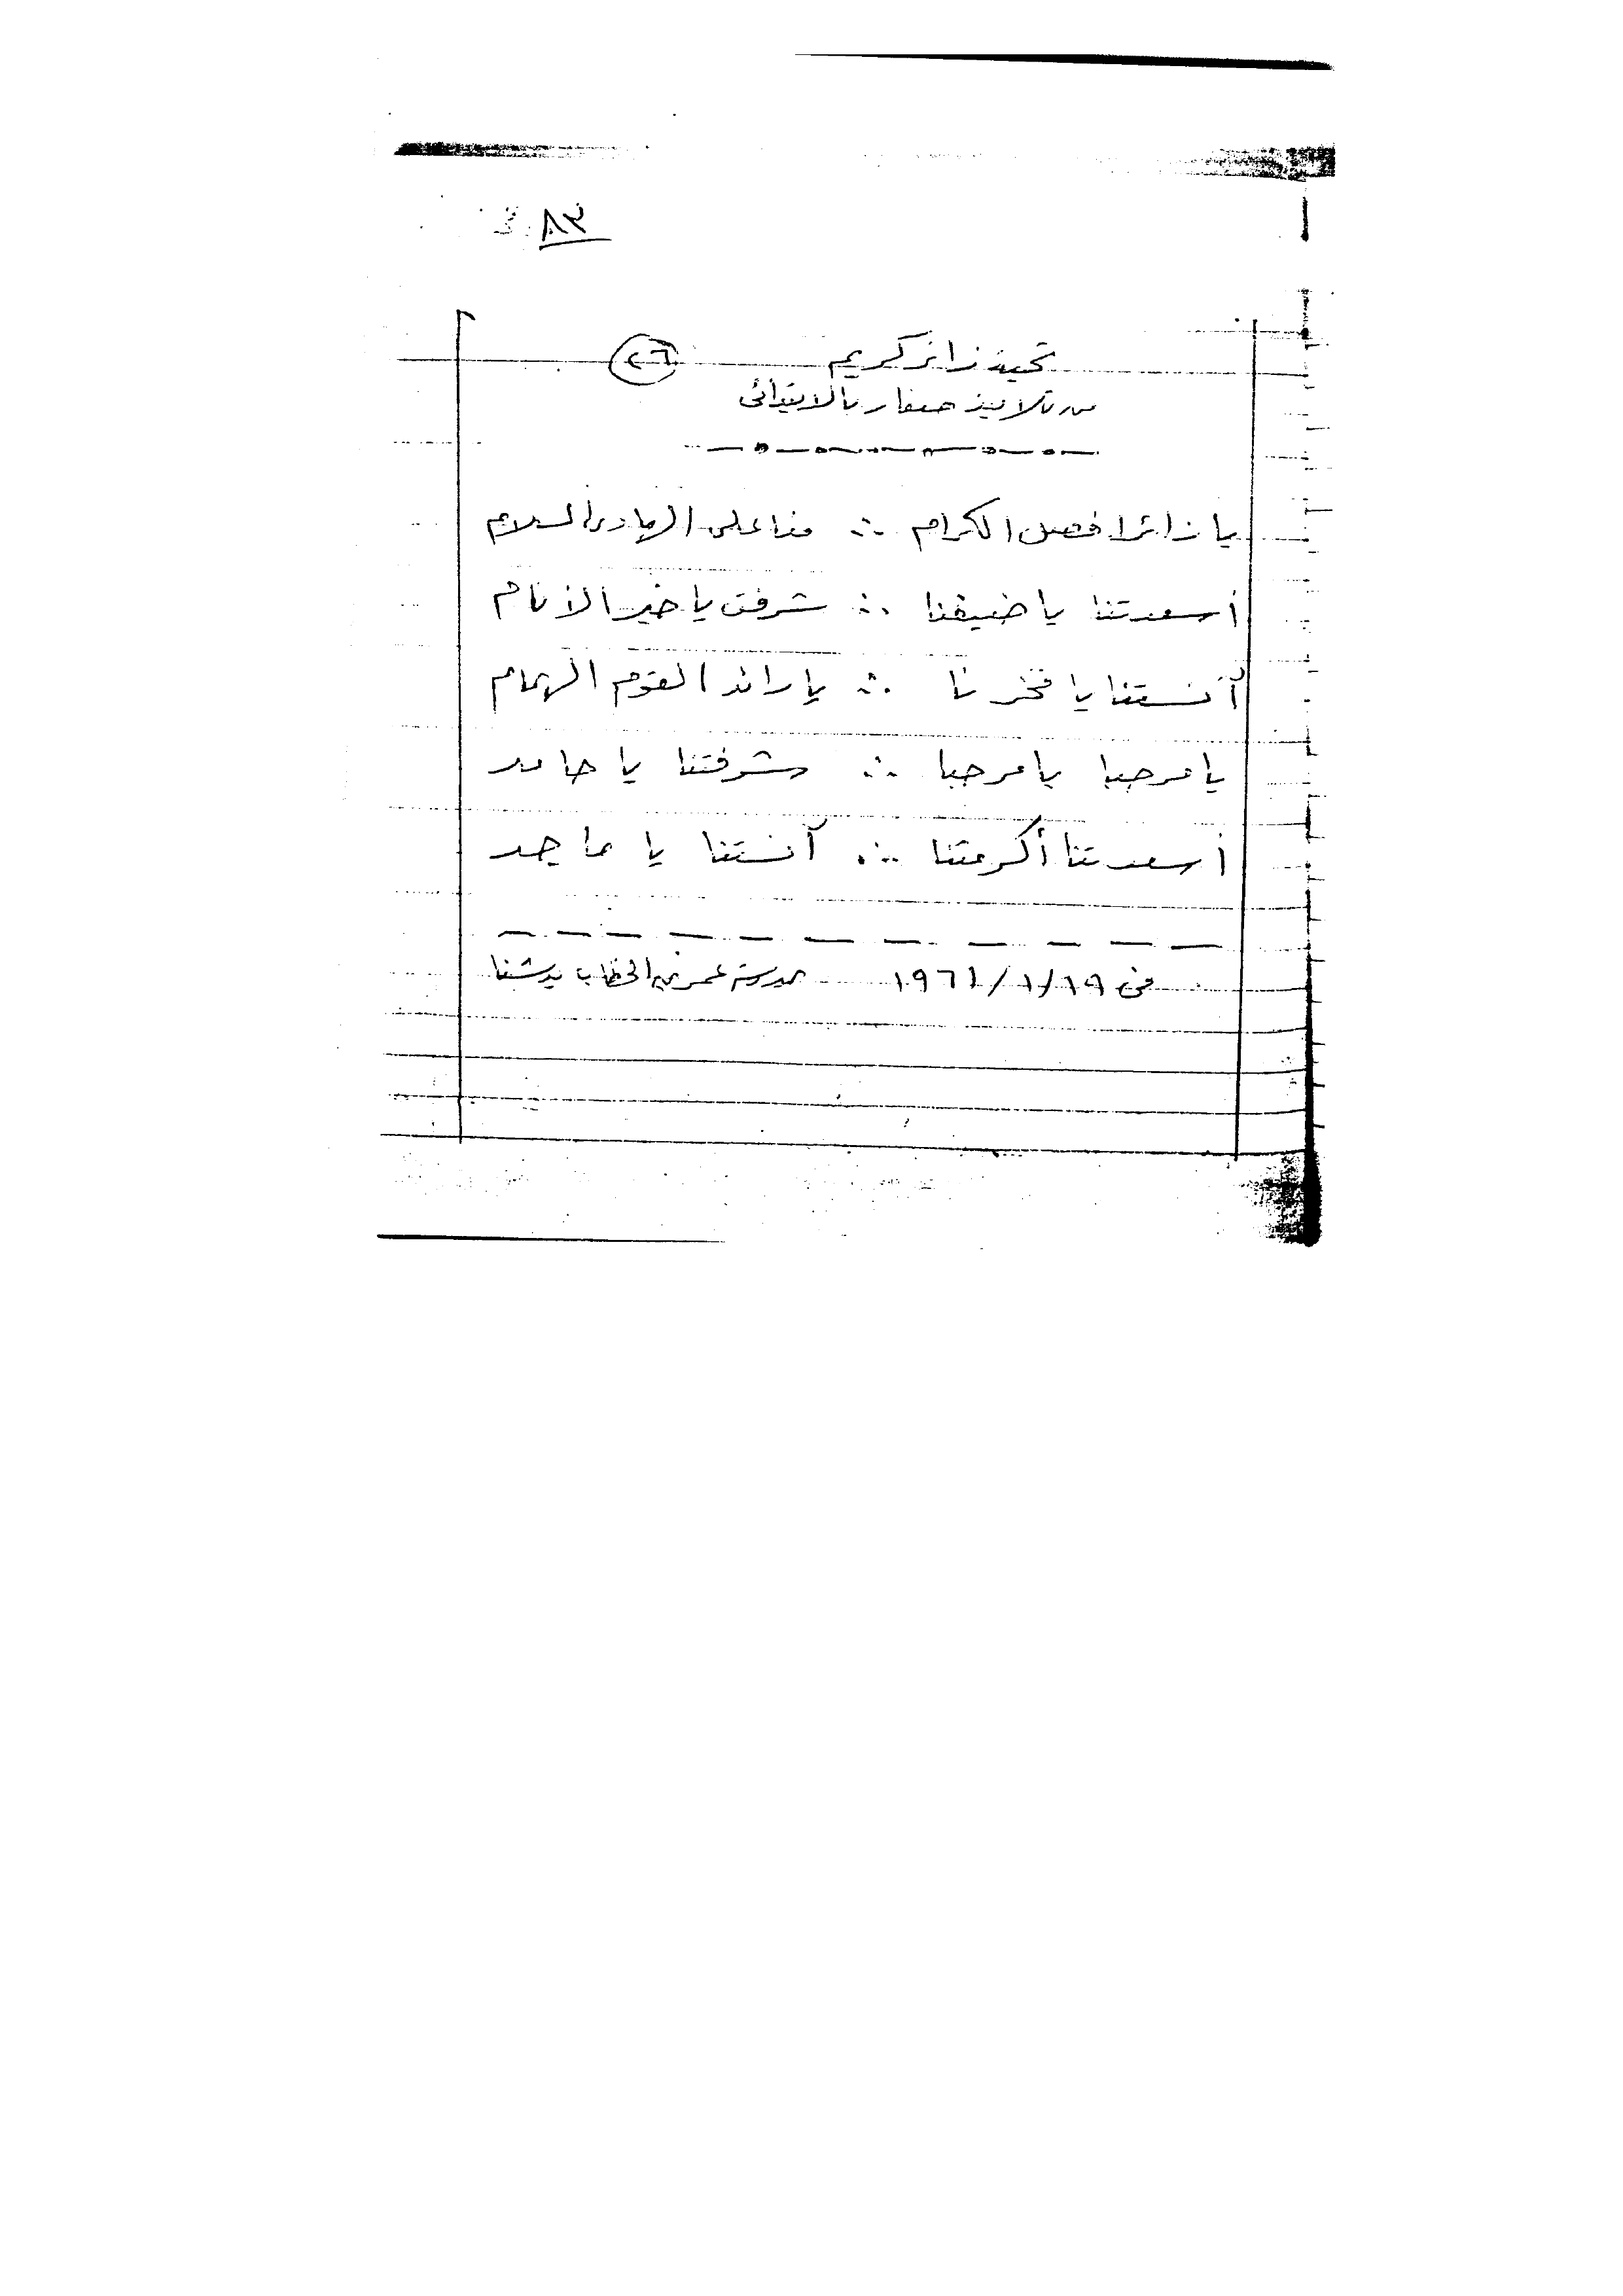 ٨٣
تحية زائر كريم ٢٦
من تلاميذ صغار بالابتدائى
يا زائرا فصل الكرام ∴ منا على الهادى السلام
أسعدتنا يا ضيفنا ∴ شرفت يا خير الأنام
آنستنا يا فخرنا ∴ يا رائد القوم الهمام
يا مرحبا يا مرحبا ∴ شرفتنا يا حامد
أسعدتنا أكرمتنا ∴ آنستنا يا ماجد
فى ١٩/١/١٩٦١ مدرسة عمر بن الخطاب بدشنا